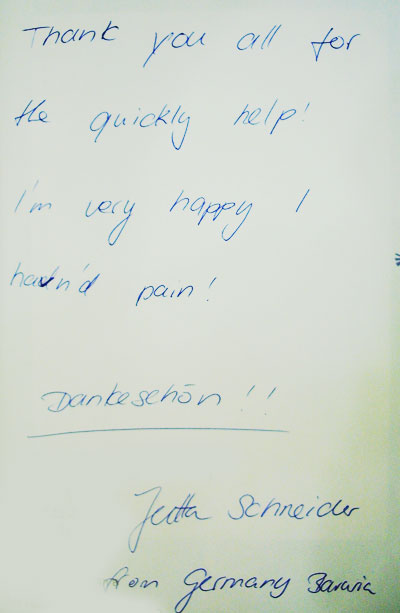 Thank you all for
the quickly help!
I'm very happy I
hadn'd pain!
Dankeschön!!
Jutta Schneider
from Germany